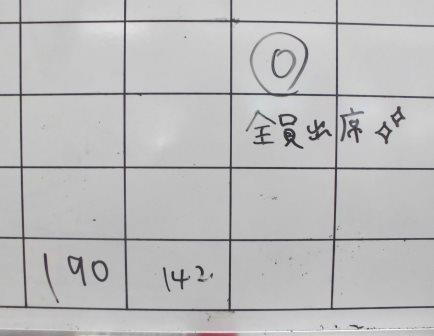 0
全員出席
190 142